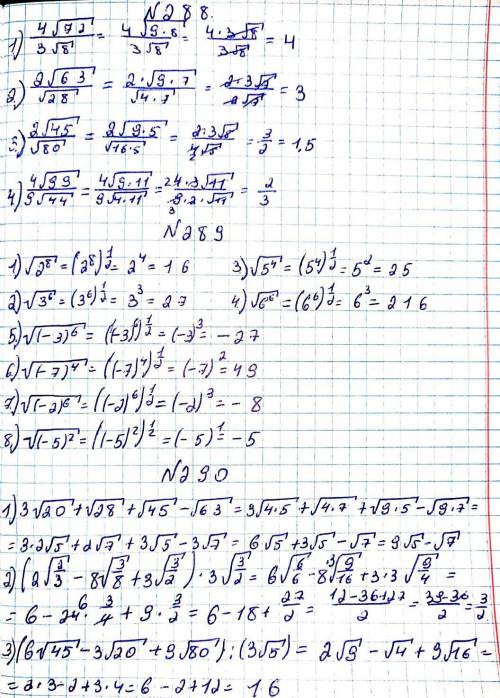 №288.
1) 4√72 / 3√8 = 4√9·8 / 3√8 = 4·3√8 / 3√8 = 4
2) 2√63 / √28 = 2·√9·7 / √4·7 = 2·3√7 / 2√7 = 3
3) 2√45 / √80 = 2√9·5 / √16·5 = 2·3√5 / 4√5 = 3/2 = 1,5
4) 4√99 / 9√44 = 4√9·11 / 9√4·11 = 4·3√11 / 9·2·√11 = 2/3
№289
1) √2⁸ = (2⁸)^½ = 2⁴ = 16 3) √5⁴ = (5⁴)^½ = 5² = 25
2) √3⁶ = (3⁶)^½ = 3³ = 27 4) √6⁶ = (6⁶)^½ = 6³ = 216
5) √(-3)⁶ = ((-3)⁶)^½ = (-3)³ = -27
6) √(-7)⁴ = ((-7)⁴)^½ = (-7)² = 49
7) √(-2)⁶ = ((-2)⁶)^½ = (-2)³ = -8
8) √(-5)² = ((-5)²)^½ = (-5)¹ = -5
№290
1) 3√20 + √28 + √45 - √63 = 3√4·5 + √4·7 + √9·5 - √9·7 =
= 3·2√5 + 2√7 + 3√5 - 3√7 = 6√5 + 3√5 - √7 = 9√5 - √7
2) (2√2/3 - 8√3/8 + 3√3/2)·3√3/2 = 6√6/6 - 8·3√9/16 + 3·3√9/4 =
= 6 - 24·3/4 + 9·3/2 = 6 - 18 + 27/2 = 12-36+27 / 2 = 39-36 / 2 = 3/2
3) (6√45 - 3√20 + 9√80):(3√5) = 2√9 - √4 + 3√16 =
= 2·3 - 2 + 3·4 = 6 - 2 + 12 = 16